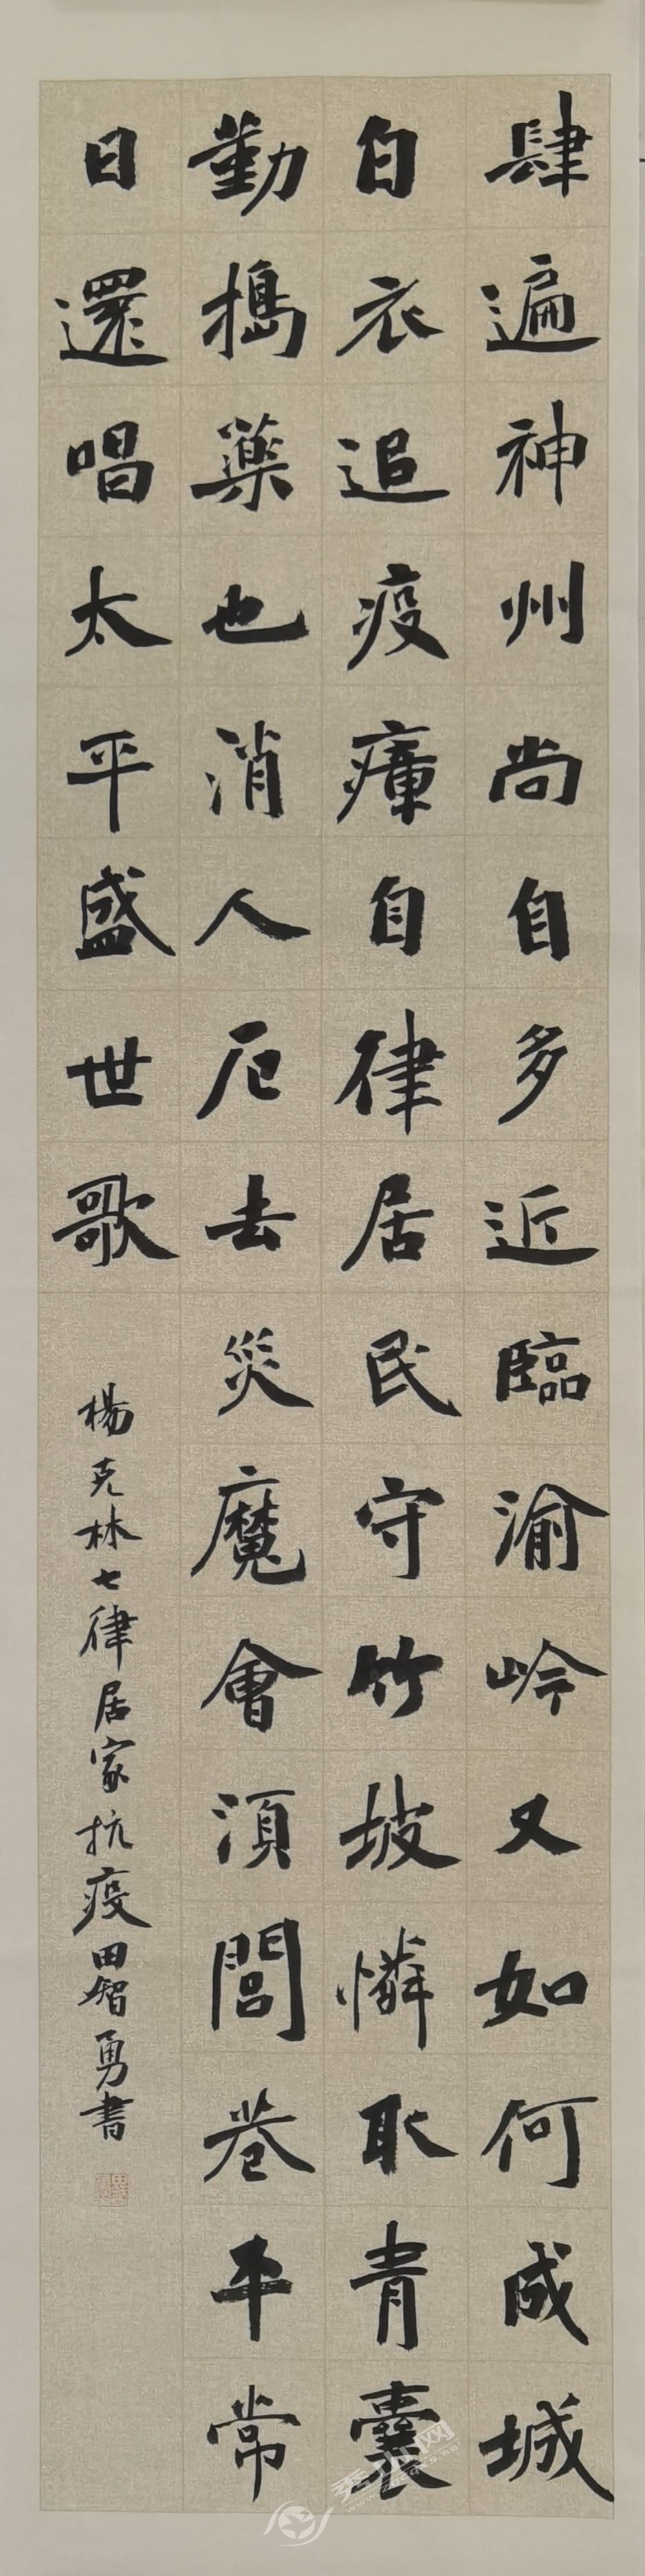 肆遍神州尚自多近臨渝岭又如何成城
白衣追疫瘴自律居民守竹坡憐取青囊
勤搗藥也消人厄去災魔會湏閭巷平常
日還唱太平盛世歌
楊克林七律居家抗疫田智勇書
秀山网